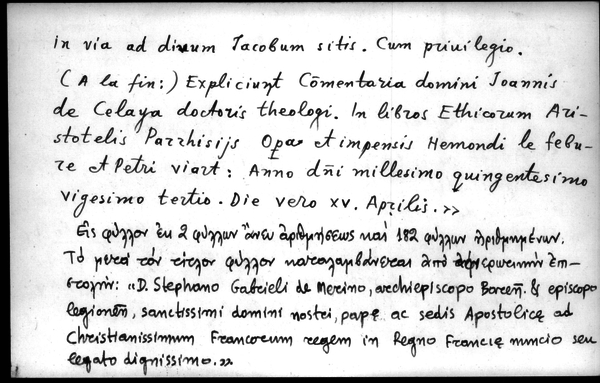 in via ad diuum Jacobum sitis. Cum priuilegio.
(A la fin:) Expliciunt Cōmentaria domini Joannis
de Celaya doctoris theologi. In libros Ethicorum Ari-
stotelis Parrhisijs Opa et impensis Hemondi le febu-
re et Petri viart: Anno dn̄i millesimo quingentesimo
vigesimo tertio. Die vero xv. Aprilis.»
Εἰς φύλλον ἐκ 2 φύλλων ἄνευ ἀριθμήσεως καὶ 182 φύλλων ἠριθμημένων.
Τὸ μετὰ τὸν τίτλον φύλλον καταλαμβάνεται ἀπὸ ἀφιερωτικὴν ἐπι-
στολὴν: «D. Stephano Gabrieli de Merino, archiepiscopo Bareñ. & episcopo
legioneñ, sanctissimi domini nostri, papę ac sedis Apostolicę ad
Christianissimum Francorum regem in Regno Francię nuncio seu
legato dignissimo.»